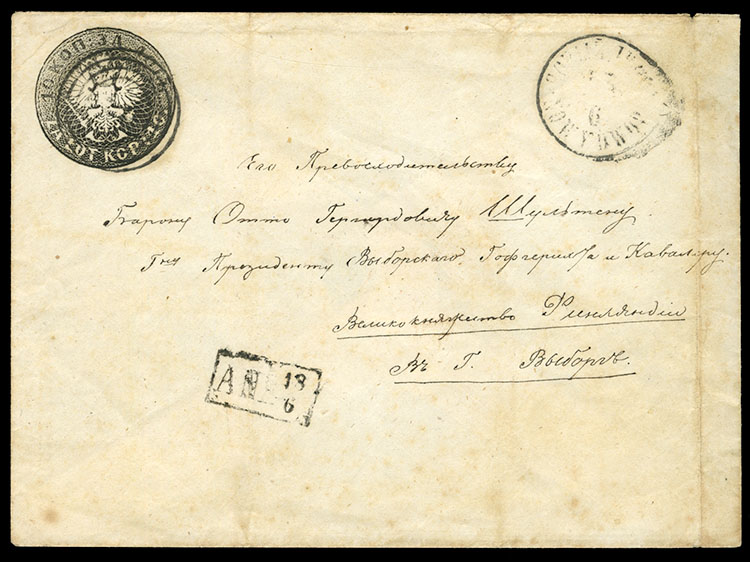 10 КОП. ЗА ЛОТЪ
1 К. ОТ КОРМС
6
Его Превосходительству
Барону Отто Гергардовичу Шультену.
Гну Президенту Выборгскаго Гофгерихта и Кавалеру.
Великокняжество Финляндіи
Въ Г. Выборгъ.
AN
18
6